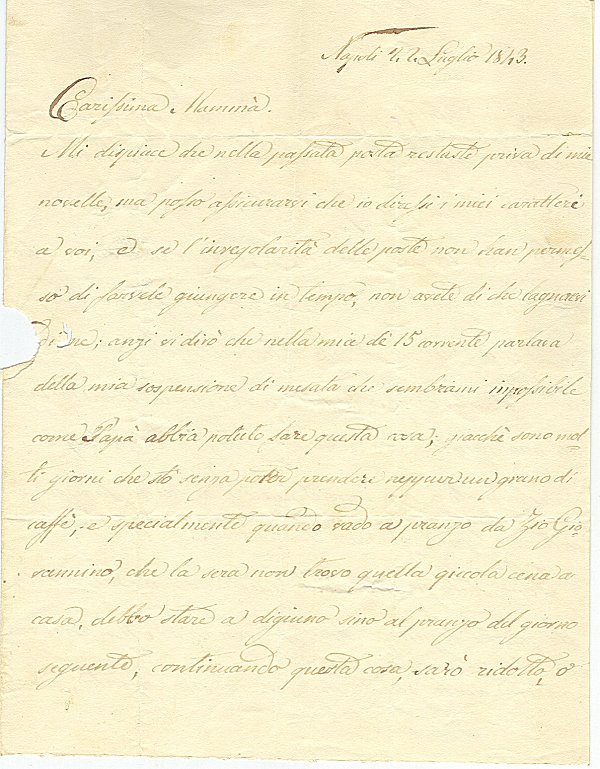 Napoli 22 Luglio 1843.
Carissima Mammà.
Mi dispiace che nella passata posta restaste priva di mie
novelle, ma posso assicurarvi che io diressi i miei caratteri
a voi, e se l'irregolarità delle poste non han permes-
so di farvele giungere in tempo, non avete di che lagnarvi
di me; anzi vi dirò che nella mia de' 15 corrente parlava
della mia sospensione di mesata che sembrami impossibile
come Papà abbia potuto fare questa cosa; giacchè sono mol-
ti giorni che sto senza poter prendere neppur un grano di
caffè, e specialmente quando vado a pranzo da Zio Gio-
vannino, che la sera non trovo quella piccola cena a
casa, debbo stare a digiuno sino al pranzo del giorno
seguente, continuando questa cosa, sarò ridotto, o